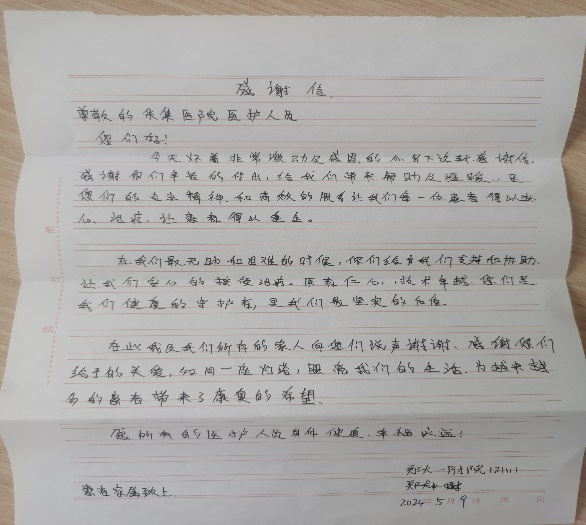 感谢信
尊敬的 集医院医护人员
您们好!
今天怀着非常激动及感恩的心 写下这封感谢信.
感谢你们辛苦的付出,给我们带来帮助及温暖,是
您们的专业精神,和高效的服务让我们每一位患者得以安
心,治疗,让患者得以重生。
在我们最无助和困难的时候,你们给予我们支持和协助.
让我们安心的接受治疗。医者仁心,技术卓越.您们是
我们健康的守护者,是我们最坚实的后盾.
在此我及我们所有的家人向您们说声谢谢、感谢您们
给予的关爱,如同一座灯塔,照亮我们的生活.为越来越
多的患者带来了康复的希望.
愿所有的医护人员身体健康.幸福 !
郑大一附院
患者家属致上
2024年5月9